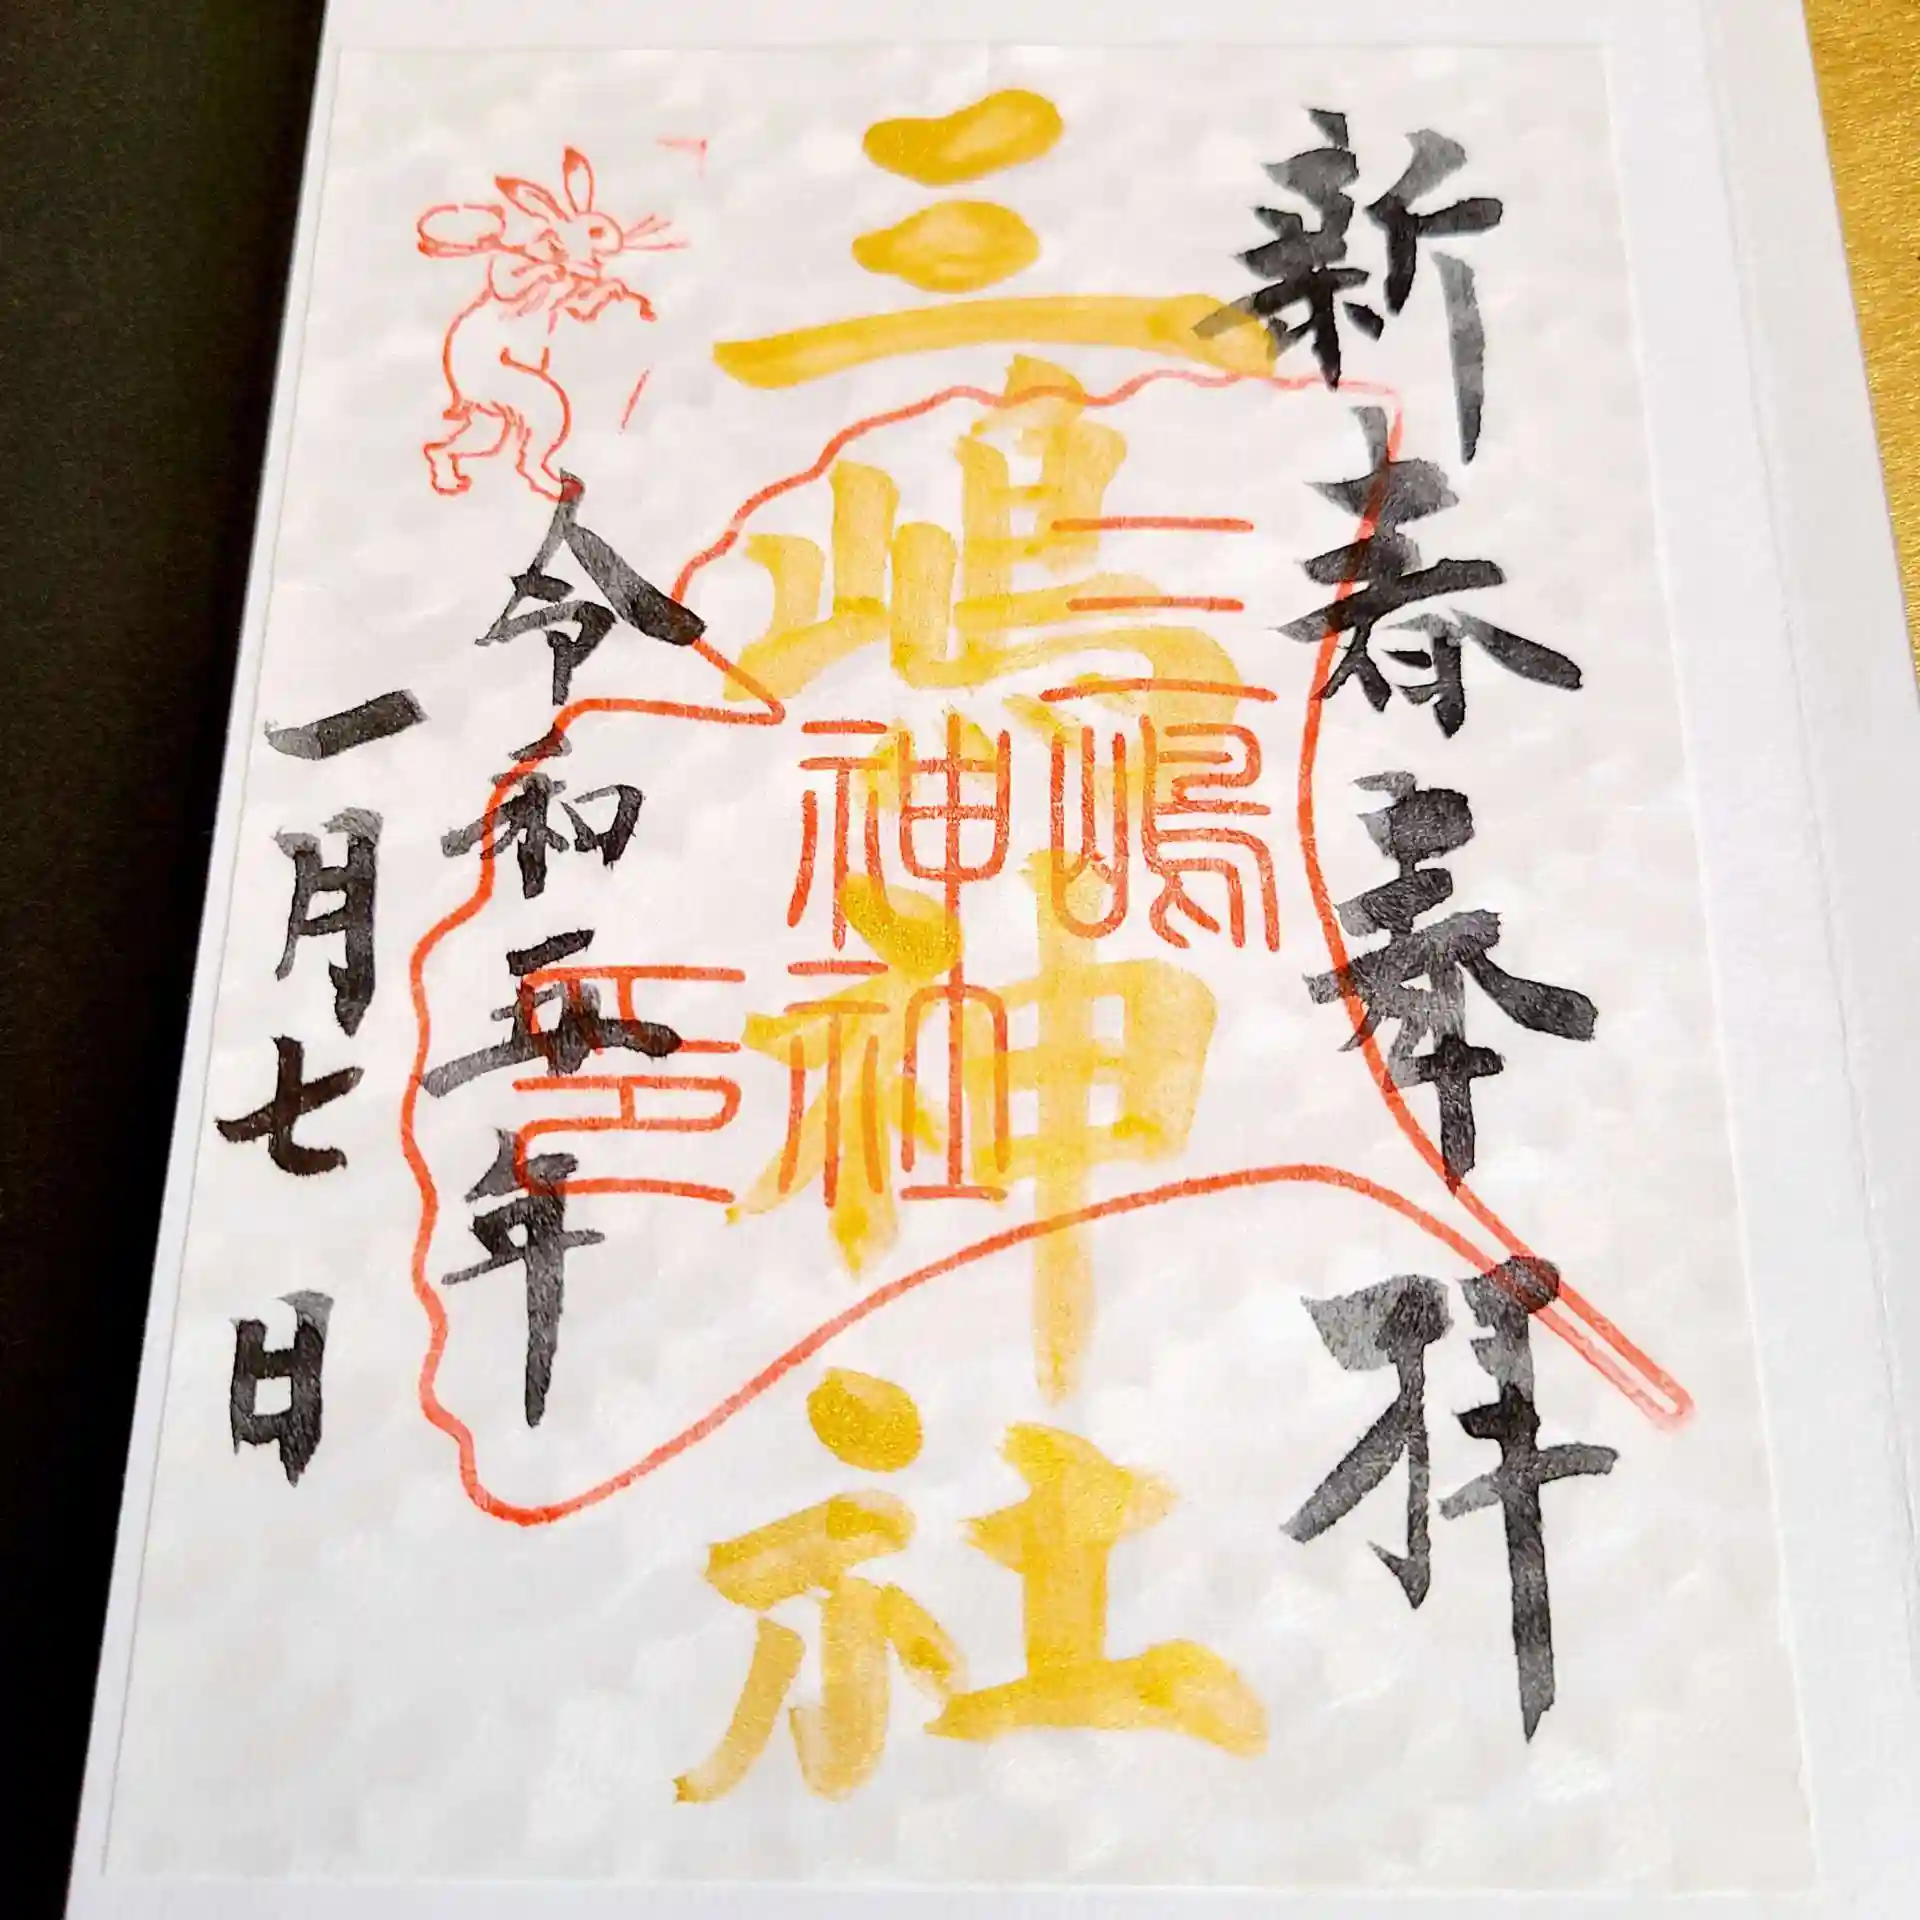 新春奉拝
三嶋神社
三嶋
神社
印
令和五年
一月七日